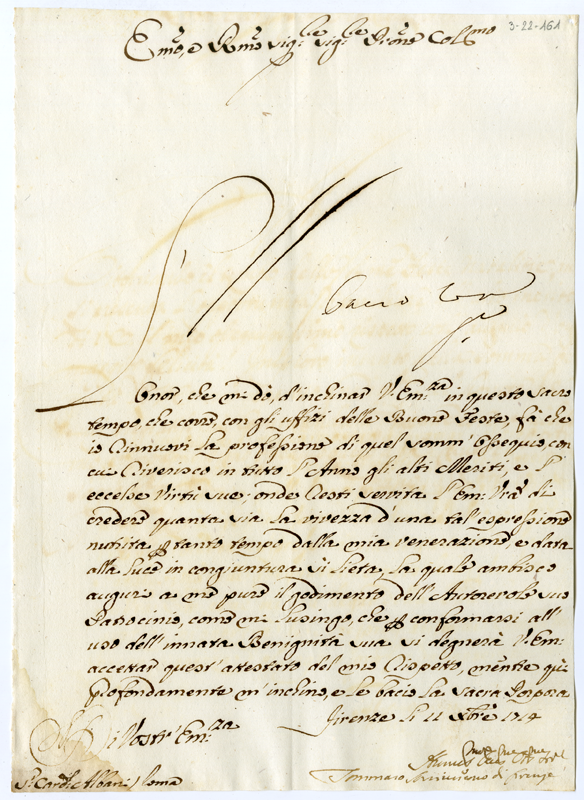 3-22-161
Emo, e Rmo Sig.re Sig.re Prone Colmo
L'Onor, che mi dò, d'inchinar V. Em.za in questo sacro
tempo, che corre, con gli uffizi delle Buone Feste, fà che
io rinnuovi la professione di quel somm' Ossequio, con
cui riverisco in tutto l'Anno gli alti Meriti, e l'
eccelse Virtù sue; onde resti servita l'Em: Vrã di
credere quanta sia la vivezza d'una tal'espressione
nutrita p tanto tempo dalla mia venerazione, e data
alla luce in congiuntura sì lieta, la quale ambisco
auguri a me pure il godimento dell'Autorevole suo
Patrocinio, come mi lusingo, che p conformarsi all'
uso dell'innata Benignità sua si degnerà V. Em:
accettar quest'attestato del mio rispetto, mentre qui
profondamente m'inchino, e le bacio la Sacra Porpora
Di Vostr'Em.za
Firenze li 11 Xbre 1714
Sr Card. Albani / Roma
Tommaso Arcivescovo di Firenze